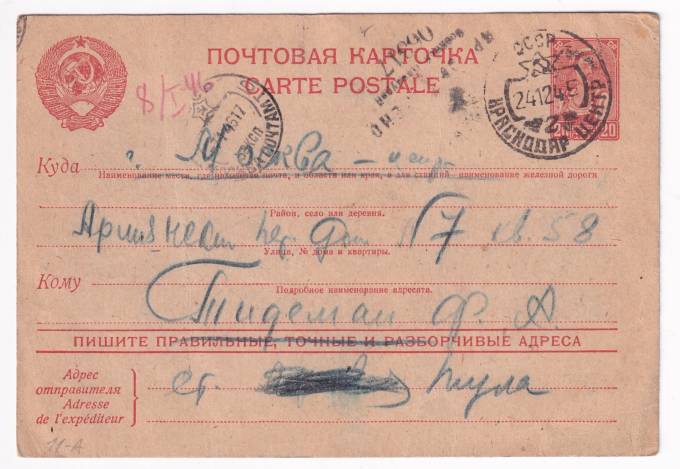 ПОЧТОВАЯ КАРТОЧКА
CARTE POSTALE
8/I 46
СССР
24 12 45
КРАСНОДАР ЦЕНТР
20
Куда г. Москва - центр
Наименование места, где находится почта, и области или края, а для станций наименование железной дороги
Район, село или деревня.
Армянский пер. дом №7 кв. 58
Улица, № дома и квартиры.
Кому
Подробное наименование адресата.
Тидеман Ф. А.
ПИШИТЕ ПРАВИЛЬНЫЕ, ТОЧНЫЕ И РАЗБОРЧИВЫЕ АДРЕСА
Адрес
отправителя
Adresse
de l'expéditeur
ст.
11-А